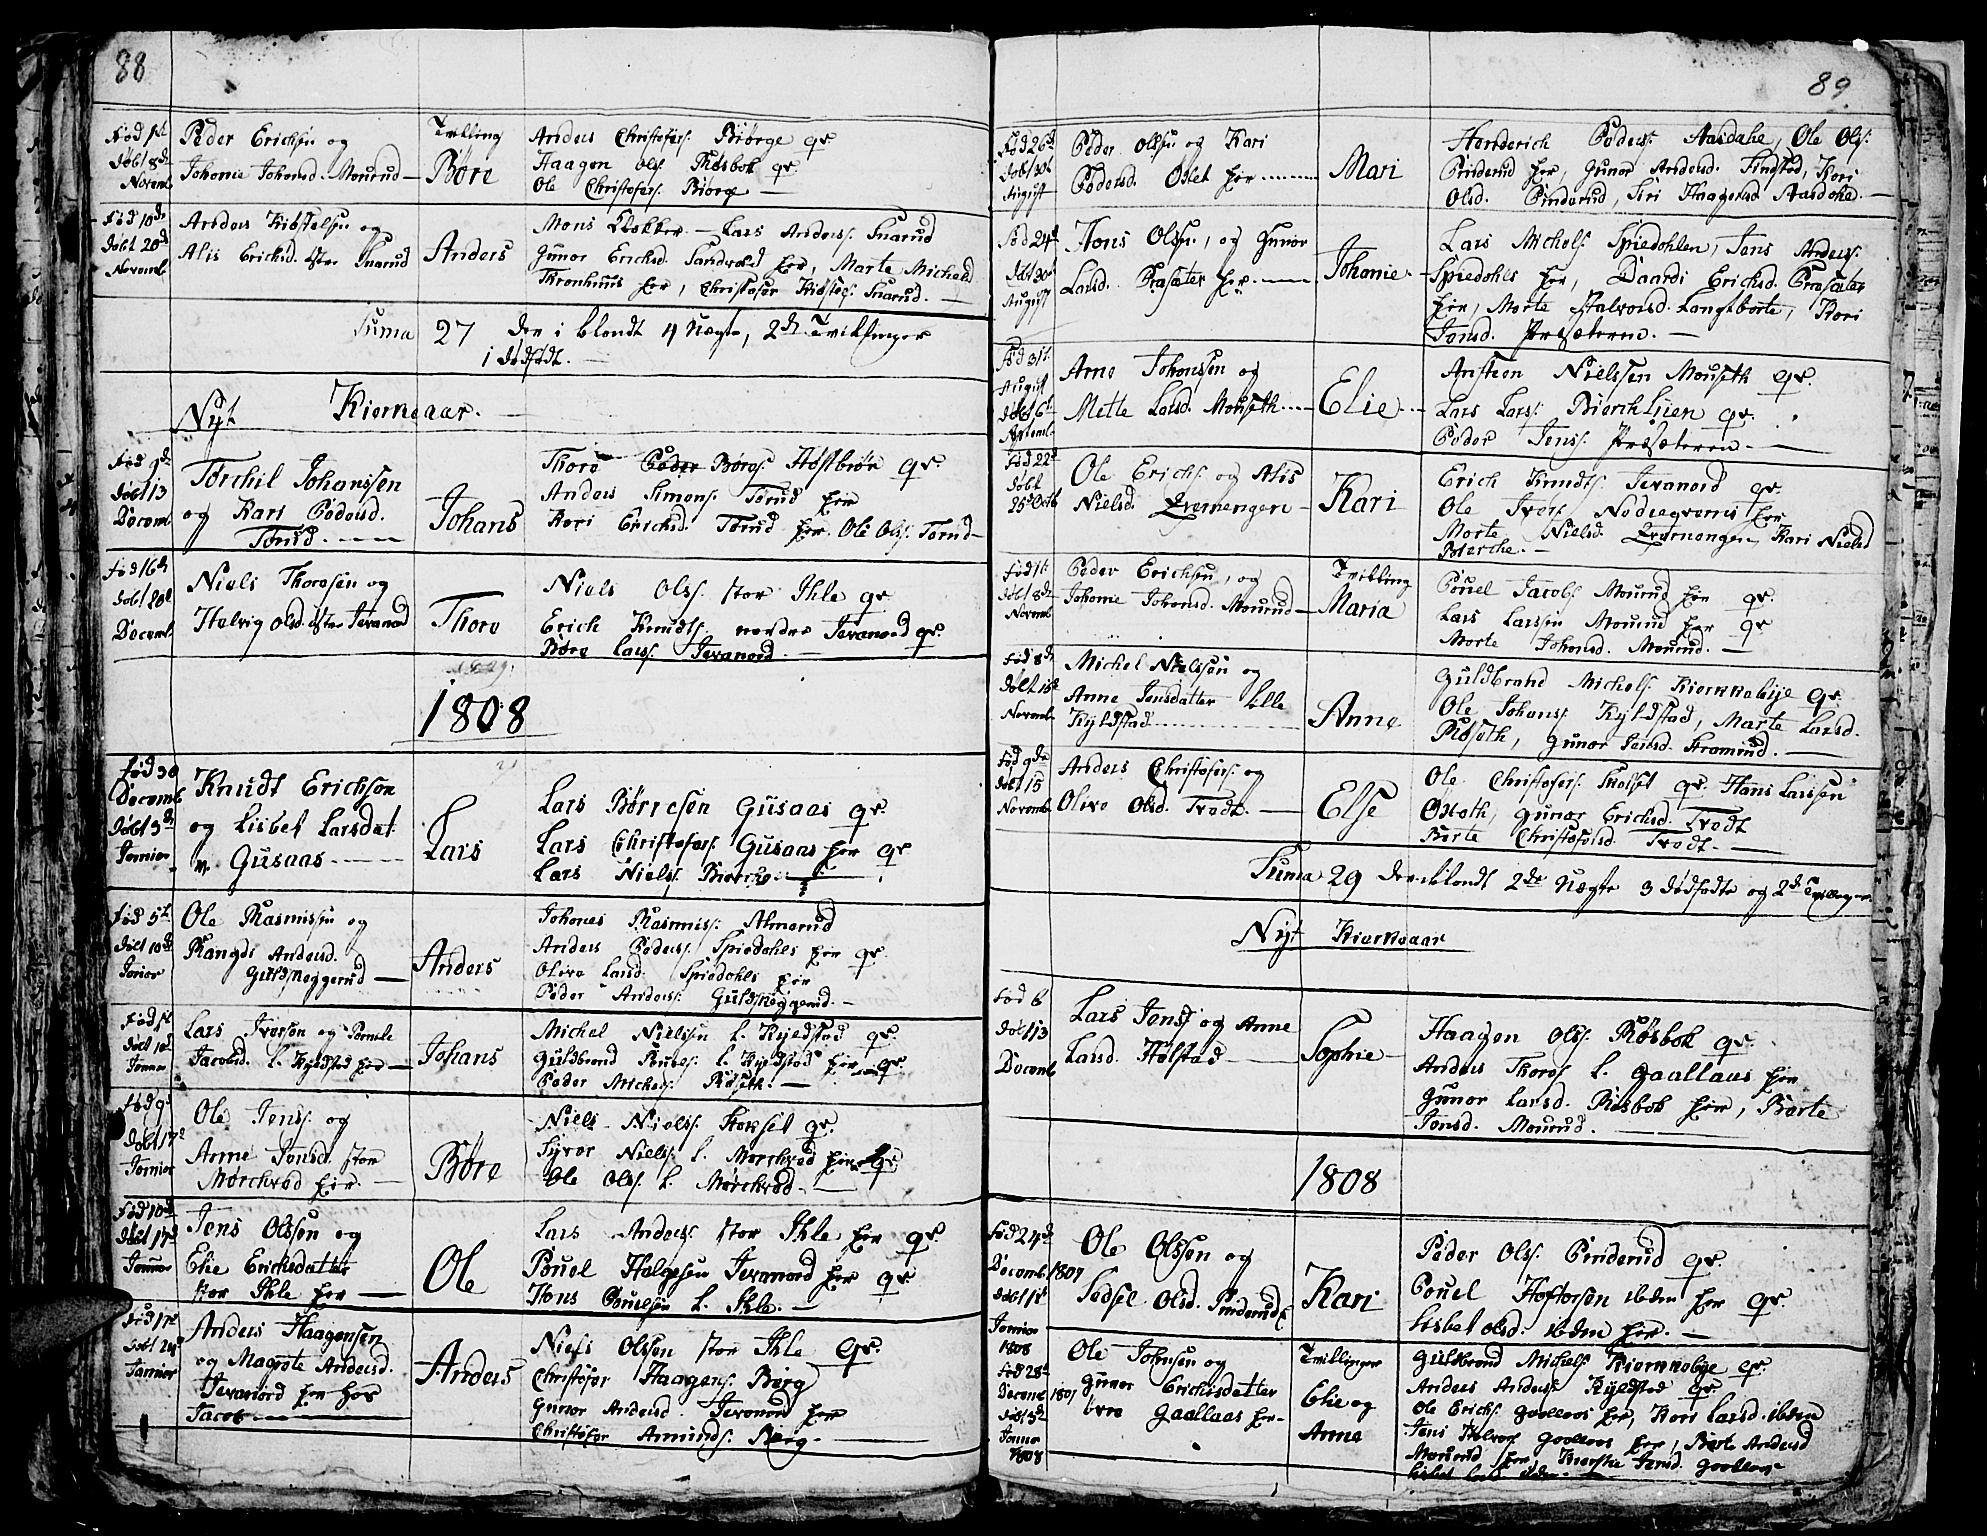 88
Fød 1st
døbt 8de
Novemb
Peder Erichsen og
Johanne Johansd. Mourud —
Tvilling
Børe
Anders Christofers. Biørge gr.
Haagen Ols. Røsbok gr.
Ole Christofers. Biørge —
Fød 10de
døbt 20de
Novemb
Anders Kiøstelsen og
Alis Ericksd. Snarud
Anders
Mons Klokker — Lars Anders. Snarud
Gunor Ericksd. Sandvold
Tronhuus, Christofer Kiøstels. Snarud. —
Suma 27 der i blandt 4 Uægte, 2de Tvillinger
1 dødfødt. —
Nyt Kierkeaar. —
Fød 9de
døbt 13
Decemb
Torchil Johanssen
og Kari Pedersd.
Torud. —
Johans
Thore Børgs. Høstbiør gr.
Anders Simons. Torud
Kari Ericksd. Torud Ole Ols. Torud —
Fød 16de
døbt 20de
Decemb
Niels Thoresen og
Helvig Olsd. Jevanord
Thore
Niels Ols. stor Ihle gr
Erich Knudts. nordre Jevanord gr.
Børe Lars. Jevanord. —
1808
Fød 30
Decemb
døbt 3de
Janiar
Knudt Erichson
og Lisbet Larsdat.
Gusaas —
Lars
Lars Børresen Gusaas gr
Lars Christofers. Gusaas gr
Lars Niels. Biercke —
Fød 5te
døbt 10de
Janiar
Ole Rasmussen og
Rangdi Andersd.
Guldskeggerud —
Anders
Johanes Rasmus. Almerud
Anders Peders. Spiedahls gr.
Olive Larsd. Spiedahls
Peder Anders. Guldskeggerud. —
døbt 10de
Lars Iversen og Pernele
Jacobsd. L. Kyldstad —
Johans
Michel Nielsen L. Kyldstad gr.
Guldbrand Pouels. L. Kyldstad gr.
Peder Michels. Røseth. —
Fød 9de
døbt 17de
Janiar
Ole Jens. og
Anne Jonsd. stor
Mørchved —
Børe
Niels Niels. Hoksel gr.
Syver Niels. L. Mørchved gr
Ole Ols. L. Mørchved —
Fød 10de
døbt 17de
Janiar
Jens Olssen og
Elie Ericksdatter
stor Ihle —
Ole
Lars Anders. stor Ihle gr
Pouel Helgesen Jevanord gr
Hans Pouelsen L. Ihle. —
Fød 17de
døbt 24de
Janiar
Anders Haagensen
og Magrete Andersd.
Jevanord hos
Jacob —
Anders
Niels Olssen stor Ihle gr.
Christofer Haagens. Berg
Gunor Andersd. Jevanord
Christofer Amunds. Berg. —
89
Fød 26de
døbt 30te
August
Peder Olsen og Kari
Pedersd. Oslet —
Mari
Henderich Peders. Aasdahe, Ole Ols.
Pinderud, Gunor Andersd. Finstad, Kari
Olsd. Pinderud, Siri Haagensd Aasdahe. —
Fød 24de
døbt 30te
August
Hans Olsen, og Gunor
Larsd. Præsæter —
Johanne —
Lars Michels. Spiedahlen, Jens Anders.
Spiedahls, Daardi Ericksd. Præsæter
Marte Halvorsd. Langbarte, Kari
Jonsd. Præsæteren. —
Fød 31te
August
døbt 6te
Septemb.
Arne Johanssen og
Mette Larsd. Mouseth —
Elie
Ansteen Nielssen Mouseth gr.
Lars Lars. Bierchlien gr.
Peder Jens. Præsæteren —
Fød 22de
døbt
25de Octb
Ole Erichs. og Alis
Nielsd. Evernengen —
Kari
Erich Knudts. Jevanord gr.
Ole Ivers. Nødregrens
Marte Nielsd. Evernengen, Kari Nielsd
Biercke. —
Fød 1ste
døbt 8de
Novemb
Peder Erichsen, og
Johanne Johansd. Mourud —
Tvilling
Maria
Pouel Jacobs. Mourud gr.
Lars Larssen Mourud gr
Marte Johansd. Mourud. —
Fød 8de
døbt 15de
Novemb
Michel Nielssen og
Anne Jensdatter Lille
Kyldstad —
Anne
Guldbrand Michels. Kierkebye gr.
Ole Johans. Kyldstad, Marte Larsd.
Røseth, Gunor Jensd. Framrud. —
Fød 9de
døbt 15
Novemb
Anders Christofers. og
Olive Olsd. Trodt. —
Else
Ole Christofers. gr. Hans Larssen
Gunor Ericksd. Trodt
Berte Christofersd. Trodt. —
Suma 29 der iblandt 2de Uægte 3 dødfødte og 2de Tvillinger
Nyt Kierkeaar
Fød 6
døbt 13
Decemb
Lars Jens. og Anne
Larsd. Holstad —
Sophie —
Haagen Ols. Røsbok gr.
Anders Thores. L. Gaallaas
Gunor Larsd. Røsbok, Berte
Jonsd. Mourud. —
1808
Fød 24de
Decemb. 1807
døbt 1ste
Janiar
1808
Ole Olssen og
Sedsel Olsd. Pinderud
Kari
Peder Ols. Pinderud gr.
Pouel Hoftorsen ibden gr.
Lisbet Olsd. ibden. —
Fød 28de
Decemb 1807
døbt 3de
Janiar
1808
Ole Johnsen og
Gunor Ericksdatter
øvre Gaallaas —
Tvillinger
Elie og
Anne
Guldbrand Michels. Kierkebye gr.
Anders Anders. Kyldstad gr.
Ole Erichs. Gaallaas, Kari Larsd. ibden
Jens Halvors. Gaallaas, Berte Andersd
Mourud, Kierstie Jensd. Gaallaas